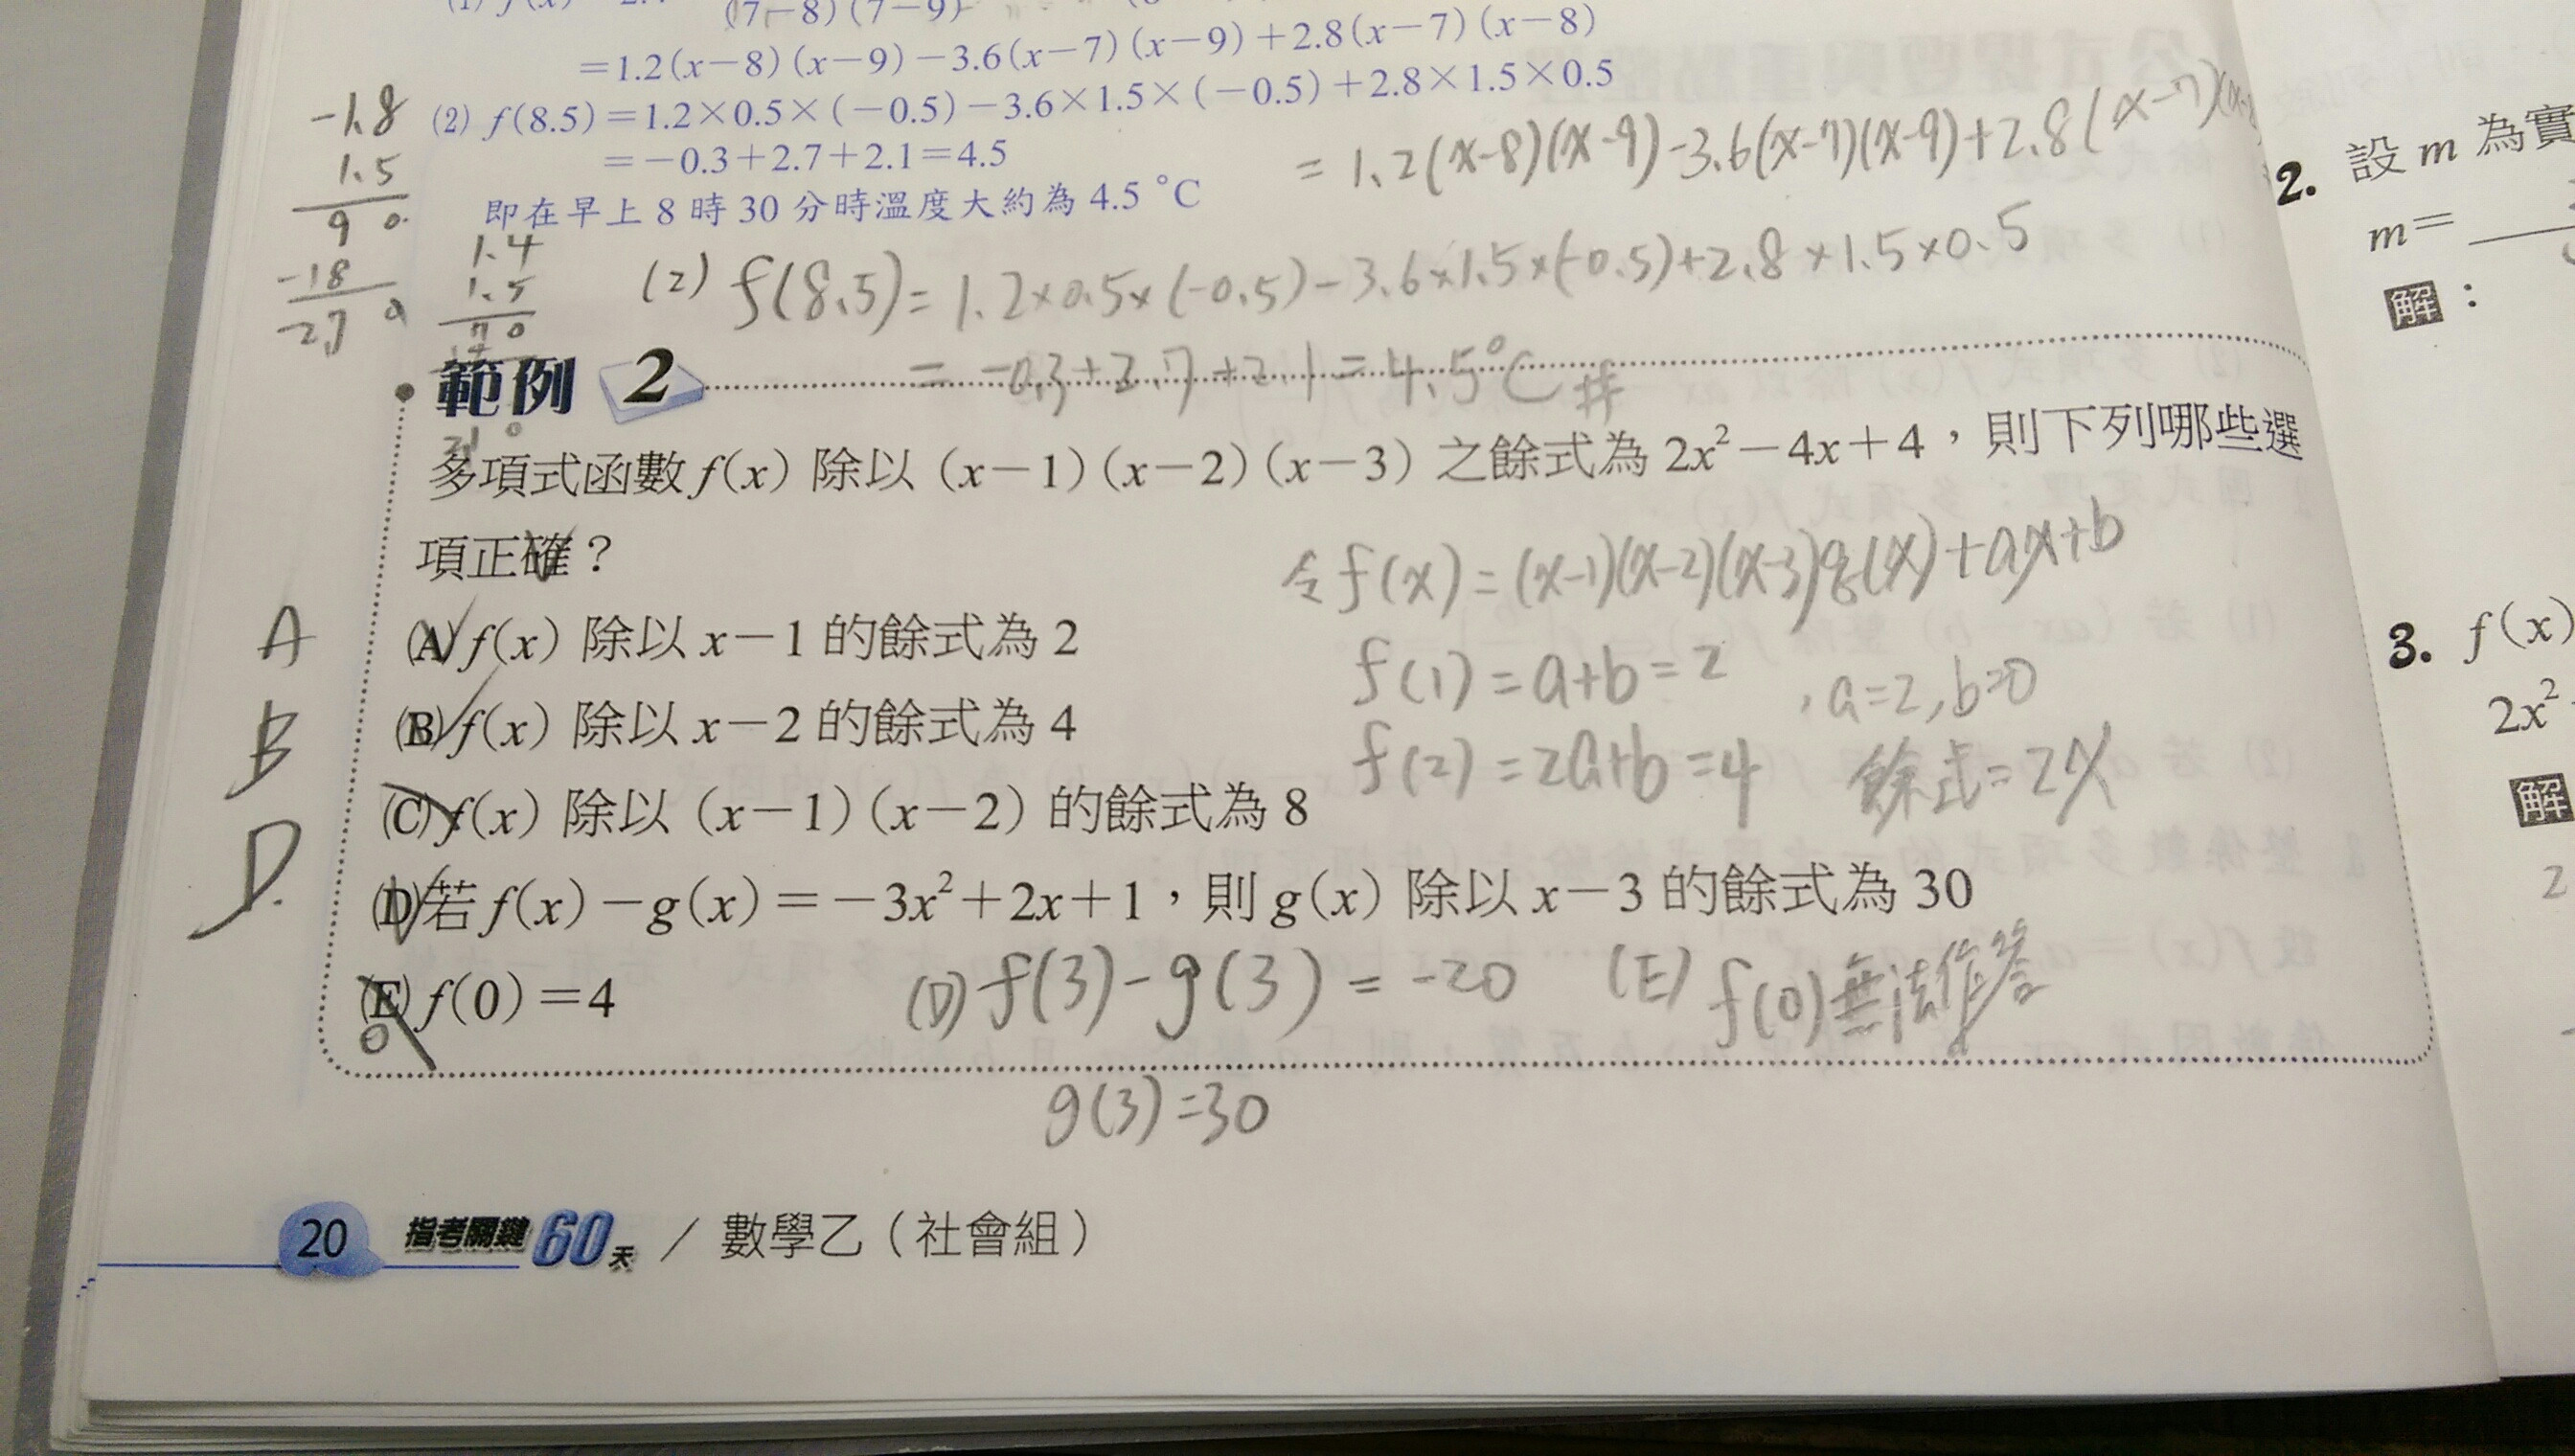 (7-8)(7-9)
=1.2(x-8)(x-9)-3.6(x-7)(x-9)+2.8(x-7)(x-8)
(2) f(8.5)=1.2×0.5×(-0.5)-3.6×1.5×(-0.5)+2.8×1.5×0.5
=-0.3+2.7+2.1=4.5
即在早上8時30分時溫度大約為4.5 °C
-1.8
1.5
9 0
-18
-27 0
1.4
1.5
70
= 1.2(x-8)(x-9)-3.6(x-7)(x-9)+2.8(x-7)(x-
(2) f(8.5)= 1.2×0.5×(-0.5)-3.6×1.5×(-0.5)+2.8×1.5×0.5
= -0.3+2.7+2.1=4.5°C
範例 2
多項式函數 f(x) 除以 (x-1)(x-2)(x-3) 之餘式為 2x²-4x+4,則下列哪些選
項正確?
令f(x)=(x-1)(x-2)(x-3)q(x)+ax+b
A
(A) f(x) 除以 x-1 的餘式為 2
f(1)=a+b=2 , a=2, b=0
B
(B) f(x) 除以 x-2 的餘式為 4
f(2)=2a+b=4 餘式=2x
(C) f(x) 除以 (x-1)(x-2) 的餘式為 8
D.
(D) 若 f(x)-g(x)=-3x²+2x+1,則 g(x) 除以 x-3 的餘式為 30
(E) f(0)=4
0
(D) f(3)-g(3)=-20
(E) f(0)無法作答
g(3)=30
20 指考關鍵60天 / 數學乙(社會組)
2. 設 m 為實
m=
解:
3. f(x)
2x²
解
2